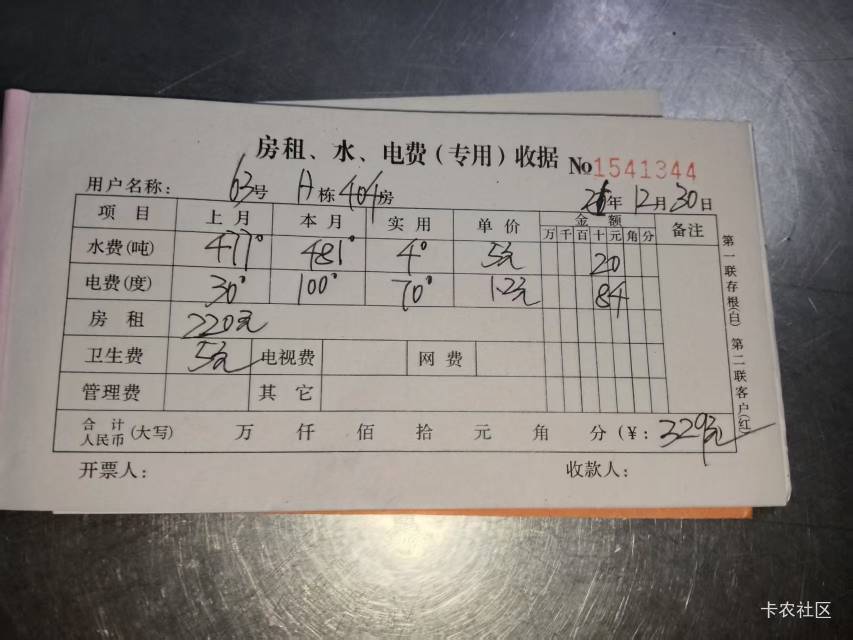 房租、水、电费(专用)收据 №1541344
用户名称: 63号 A栋404房 年12月30日
项目 上月 本月 实用 单价 金额 备注
万 千 百 十 元 角 分
水费(吨) 477° 481° 4° 5元 20
电费(度) 30° 100° 70° 1.2元 84
房租 220元
卫生费 5元 电视费 网费
管理费 其它
合计人民币(大写) 万 仟 佰 拾 元 角 分(¥: 329元
开票人: 收款人:
第一联存根(白) 第二联客户(红)
卡农社区